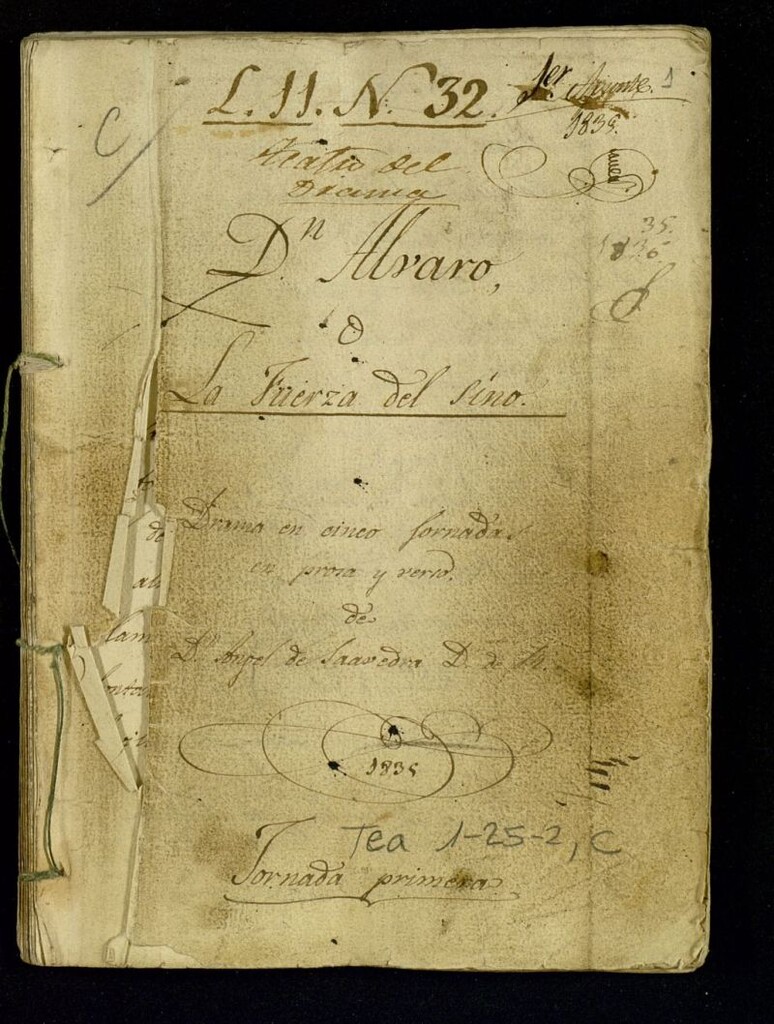 L. 11. N. 32. 1er Apunte. 1
1835.
C
Teatro del
Drama
35.
1836.
Dn Alvaro,
o
La Fuerza del sino.
Drama en cinco Jornadas
en prosa y verso.
de
Dn Angel de Saavedra D. de R.
1835
Tea 1-25-2, C
Jornada primera